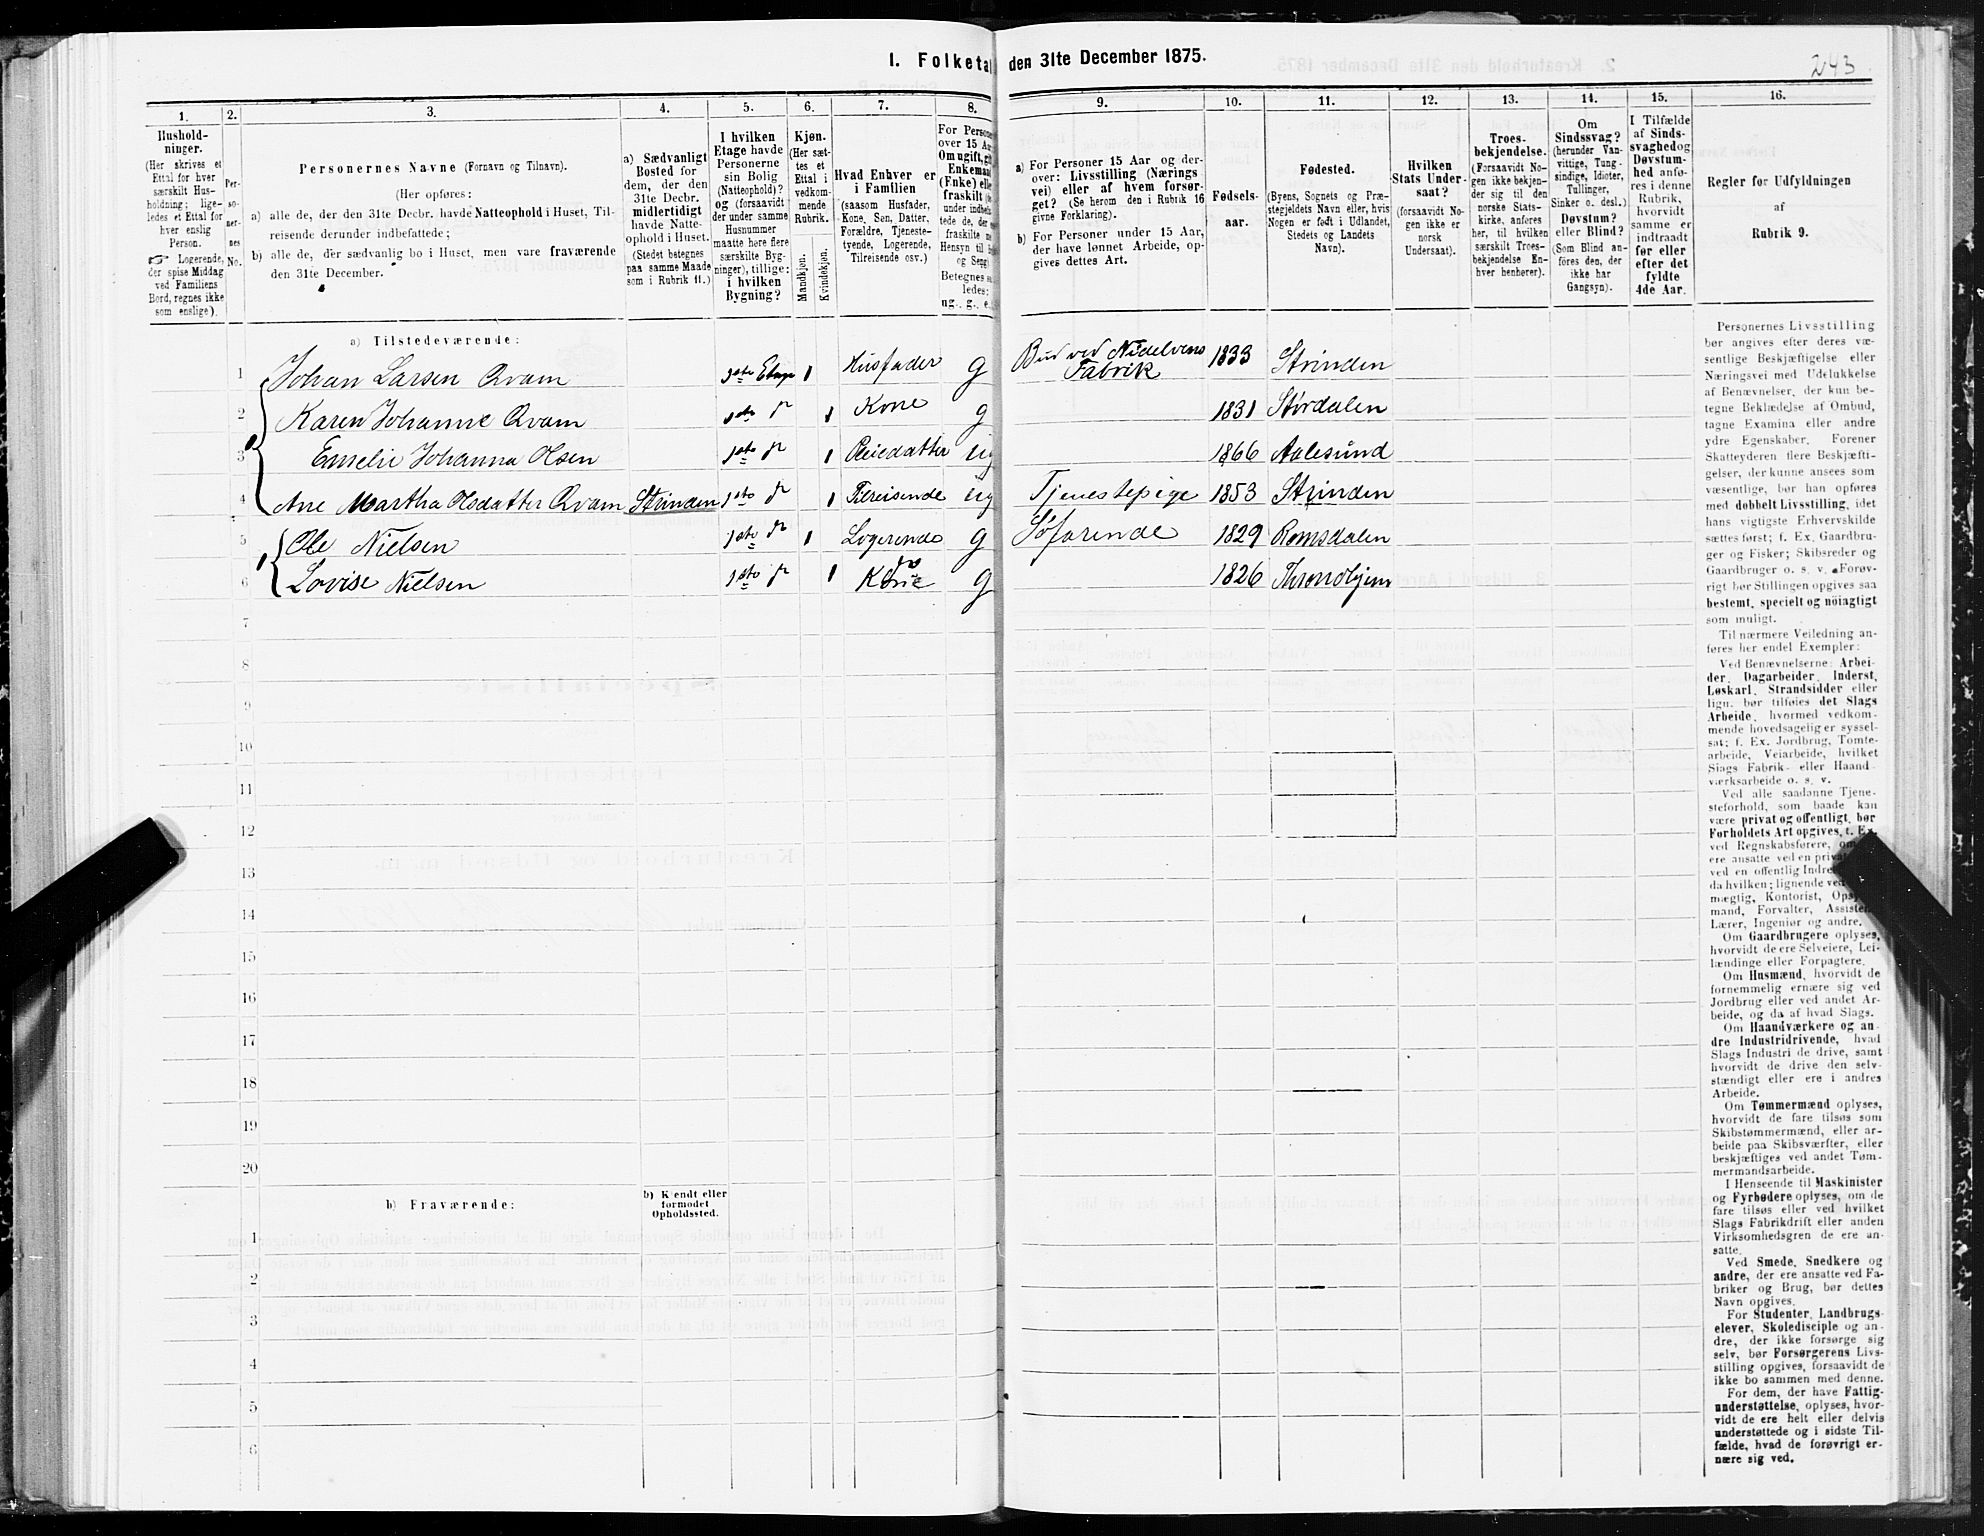 1. Folketal den 31te December 1875.
243
1.
2.
3.
4.
5.
6.
7.
8.
9.
10.
11.
12.
13.
14.
15.
16.
Hushold-
ninger.
(Her skrives et
Ettal for hver
særskilt Hus-
holdning; lige-
ledes et Ettal for
hver enslig
Person.
☞ Logerende,
der spise Middag
ved Familiens
Bord, regnes ikke
som enslige).
Per-
so-
ner-
nes
No.
Personernes Navne (Fornavn og Tilnavn).
(Her opføres:
a) alle de, der den 31te Decbr. havde Natteophold i Huset, Til-
reisende derunder indbefattede;
b) alle de, der sædvanlig bo i Huset, men vare fraværende
den 31te December.
a) Sædvanligt
Bosted for
dem, der den
31te Decbr.
midlertidigt
havde Natte-
ophold i Huset.
(Stedet betegnes
paa samme Maade
som i Rubrik 11.)
I hvilken
Etage havde
Personerne
sin Bolig
(Natteophold)?
og (forsaavidt
der under samme
Husnummer
maatte høre flere
særskilte Byg-
ninger), tillige:
i hvilken
Bygning?
Kjøn.
(Her sæt-
tes et
Ettal i
vedkom-
mende
Rubrik.
Mandkjøn.
Kvindekjøn.
Hvad Enhver er
i Familien
(saasom Husfader,
Kone, Søn, Datter,
Forældre, Tjeneste-
tyende, Logerende,
Tilreisende osv.)
For Persone
over 15 Aa
Om ugift, gi
Enkemand
(Enke) elle
fraskilt
under indbe
tede de, de
fraskilte
Hensyn til
og Seng
Betegnes s
ledes:
ug., g., e.
a) For Personer 15 Aar og der-
over: Livsstilling (Nærings
vei) eller af hvem forsør-
get? (Se herom den i Rubrik 16
givne Forklaring).
b) For Personer under 15 Aar,
der have lønnet Arbeide, op-
gives dettes Art.
Fødsels-
aar.
Fødested.
(Byens, Sognets og Præ-
stegjeldets Navn eller, hvis
Nogen er født i Udlandet,
Stedets og Landets
Navn).
Hvilken
Stats Under-
saat?
(forsaavidt No-
gen ikke er
norsk
Undersaat).
Troes-
bekjendelse.
(Forsaavidt No-
gen ikke bekjen-
der sig til den
norske Stats-
kirke, anføres
her, til hvilken
særskilt Troes-
bekjendelse En-
hver henhører).
Om
Sindssvag?
(herunder Van-
vittige, Tung-
sindige, Idioter,
Tullinger,
Sinker o. desl.)
Døvstum?
eller Blind?
(Som Blind an-
føres den, der
ikke har
Gangsyn).
I Tilfælde
af Sinds-
svaghed og
Døvstum-
hed anfø-
res i denne
Rubrik,
hvorvidt
samme er
indtraadt
før eller
efter det
fyldte
4de Aar.
Regler for Udfyldningen
af
Rubrik 9.
a) Tilstedeværende:
1 Johan Larsen Qvam 1ste Etage 1 Husfader g Bud ved Nidelvens Fabrik 1833 Strinden
2 Karen Johanne Qvam 1ste do 1 Kone g 1831 Størdalen
3 Emelie Johanna Olsen 1ste do 1 Pleiedatter ug 1866 Aalesund
4 Ane Martha Olsdatter Qvam Strinden 1ste do 1 Tilreisende ug Tjenestepige 1853 Strinden
5 Ole Nielsen 1ste do 1 Logerende g Søfarende 1829 Romsdalen
6 Lovise Nielsen 1ste do 1 do Kone g 1826 Throndhjem
7
8
9
10
11
12
13
14
15
16
17
18
19
20
b) Fraværende:
b) Kjendt eller
formodet
Opholdssted.
1
2
3
4
5
6
Personernes Livsstilling
bør angives efter deres væ-
sentlige Beskjæftigelse eller
Næringsvei med Udelukkelse
af Benævnelser, der kun be-
tegne Beklædelse af Ombud,
tagne Examina eller andre
ydre Egenskaber. Forener
Skatteyderen flere Beskjæfti-
gelser, der kunne ansees som
væsentlige, bør han opføres
med dobbelt Livsstilling, idet
hans vigtigste Erhvervskilde
sættes først; f. Ex. Gaardbru-
ger og Fisker; Skibsreder og
Gaardbruger o. s. v. Forøv-
rigt bør Stillingen opgives saa
bestemt, specielt og nöiagtigt
som muligt.
Til nærmere Veiledning an-
føres her endel Exempler:
Ved Benævnelserne: Arbei-
der, Dagarbeider, Inderst,
Løskarl, Strandsidder eller
lign. bør tilføies det Slags
Arbeide, hvormed vedkom-
mende hovedsagelig er syssel-
sat; f. Ex. Jordbrug, Tomte-
arbeide, Veiarbeide, hvilket
Slags Fabrik- eller Haand-
værksarbeide o. s. v.
Ved alle saadanne Tjene-
steforhold, som baade kan
være privat og offentligt, bør
Forholdets Art opgives, t. Ex.
ved Regnskabsførere, om
ere ansatte ved en privat
ved en offentlig Indre
da hvilken; lignende ved
mægtig, Kontorist, Opsy
mand, Forvalter, Assistent
Lærer, Ingeniør og andre.
Om Gaardbrugere oplyses,
hvorvidt de ere Selveiere, Lei-
lændinge eller Forpagtere.
Om Husmænd, hvorvidt de
fornemmelig ernære sig ved
Jordbrug eller ved andet Ar-
beide, og da af hvad Slags.
Om Haandværkere og an-
dre Industridrivende, hvad
Slags Industri de drive, samt
hvorvidt de drive den selv-
stændigt eller ere i andres
Arbeide.
Om Tømmermænd oplyses,
hvorvidt de fare tilsøs som
Skibstømmermænd, eller ar-
beide paa Skibsværfter, eller
beskjæftiges ved andet Tøm-
mermandsarbeide.
I Henseende til Maskinister
og Fyrbødere oplyses, om de
fare tilsøs eller ved hvilket
Slags Fabrikdrift eller anden
Virksomhedsgren de ere an-
satte.
Ved Smede, Snedkere og
andre, der ere ansatte ved Fa-
briker og Brug, bør dettes
Navn opgives.
For Studenter, Landbrugs-
elever, Skoledisciple og an-
dre, der ikke forsørge sig
selv, bør Forsørgerens Livs-
stilling opgives, forsaavidt de
ikke bo sammen med denne.
For dem, der have Fattig-
understøttelse, oplyses, hvor-
vidt de ere helt eller delvis
understøttede og i sidste Til-
fælde, hvad de forøvrigt er-
nære sig ved.